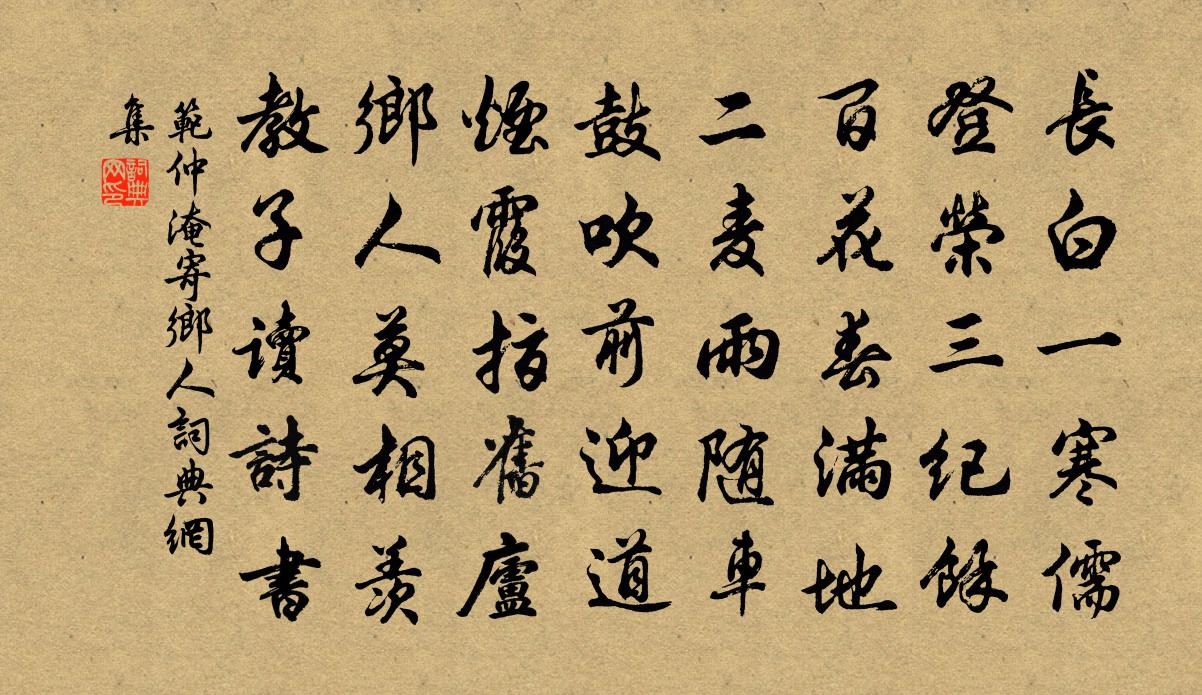 長白一寒儒
登榮三紀餘
百花春滿地
二麦雨随車
鼓吹前迎道
煙霞指舊廬
鄉人莫相羨
教子讀詩書
範仲淹寄鄉人詞典網
集
詞典
网印